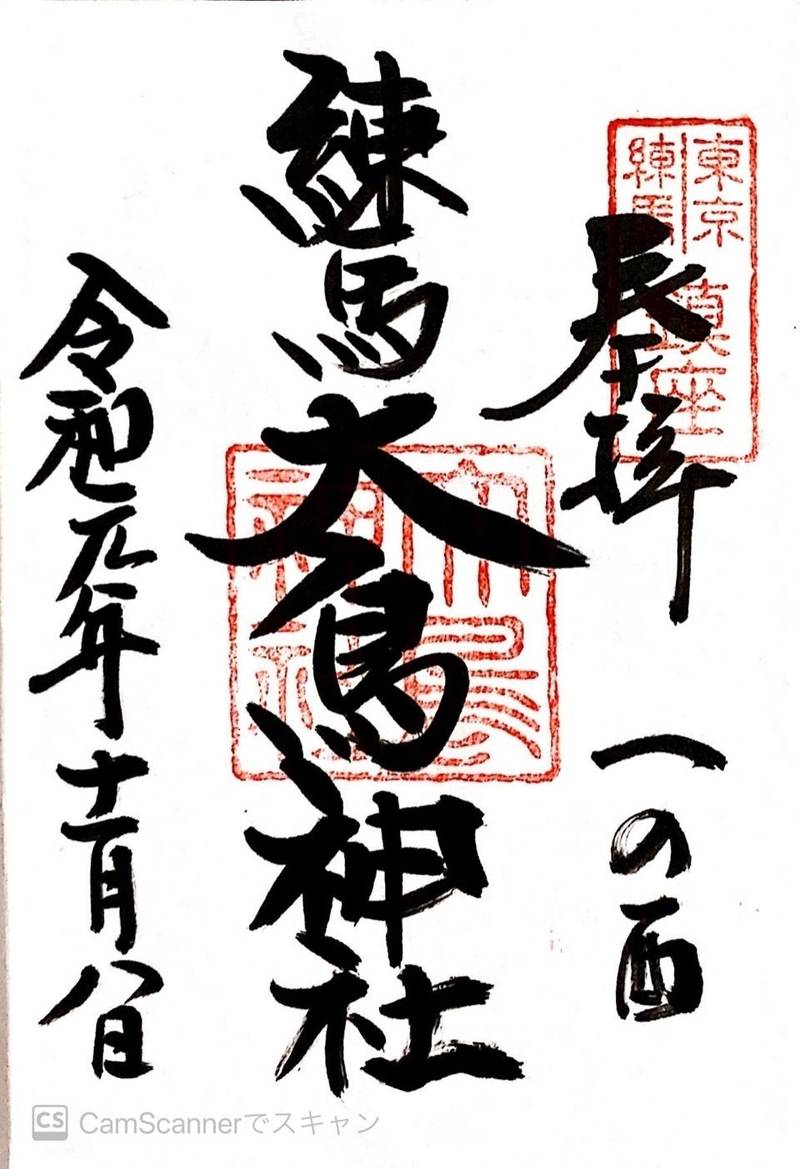 東京
練馬
鎮座
奉拝 一の酉
練馬大鳥神社
大鳥
神社
令和元年十一月八日
CS CamScannerでスキャン